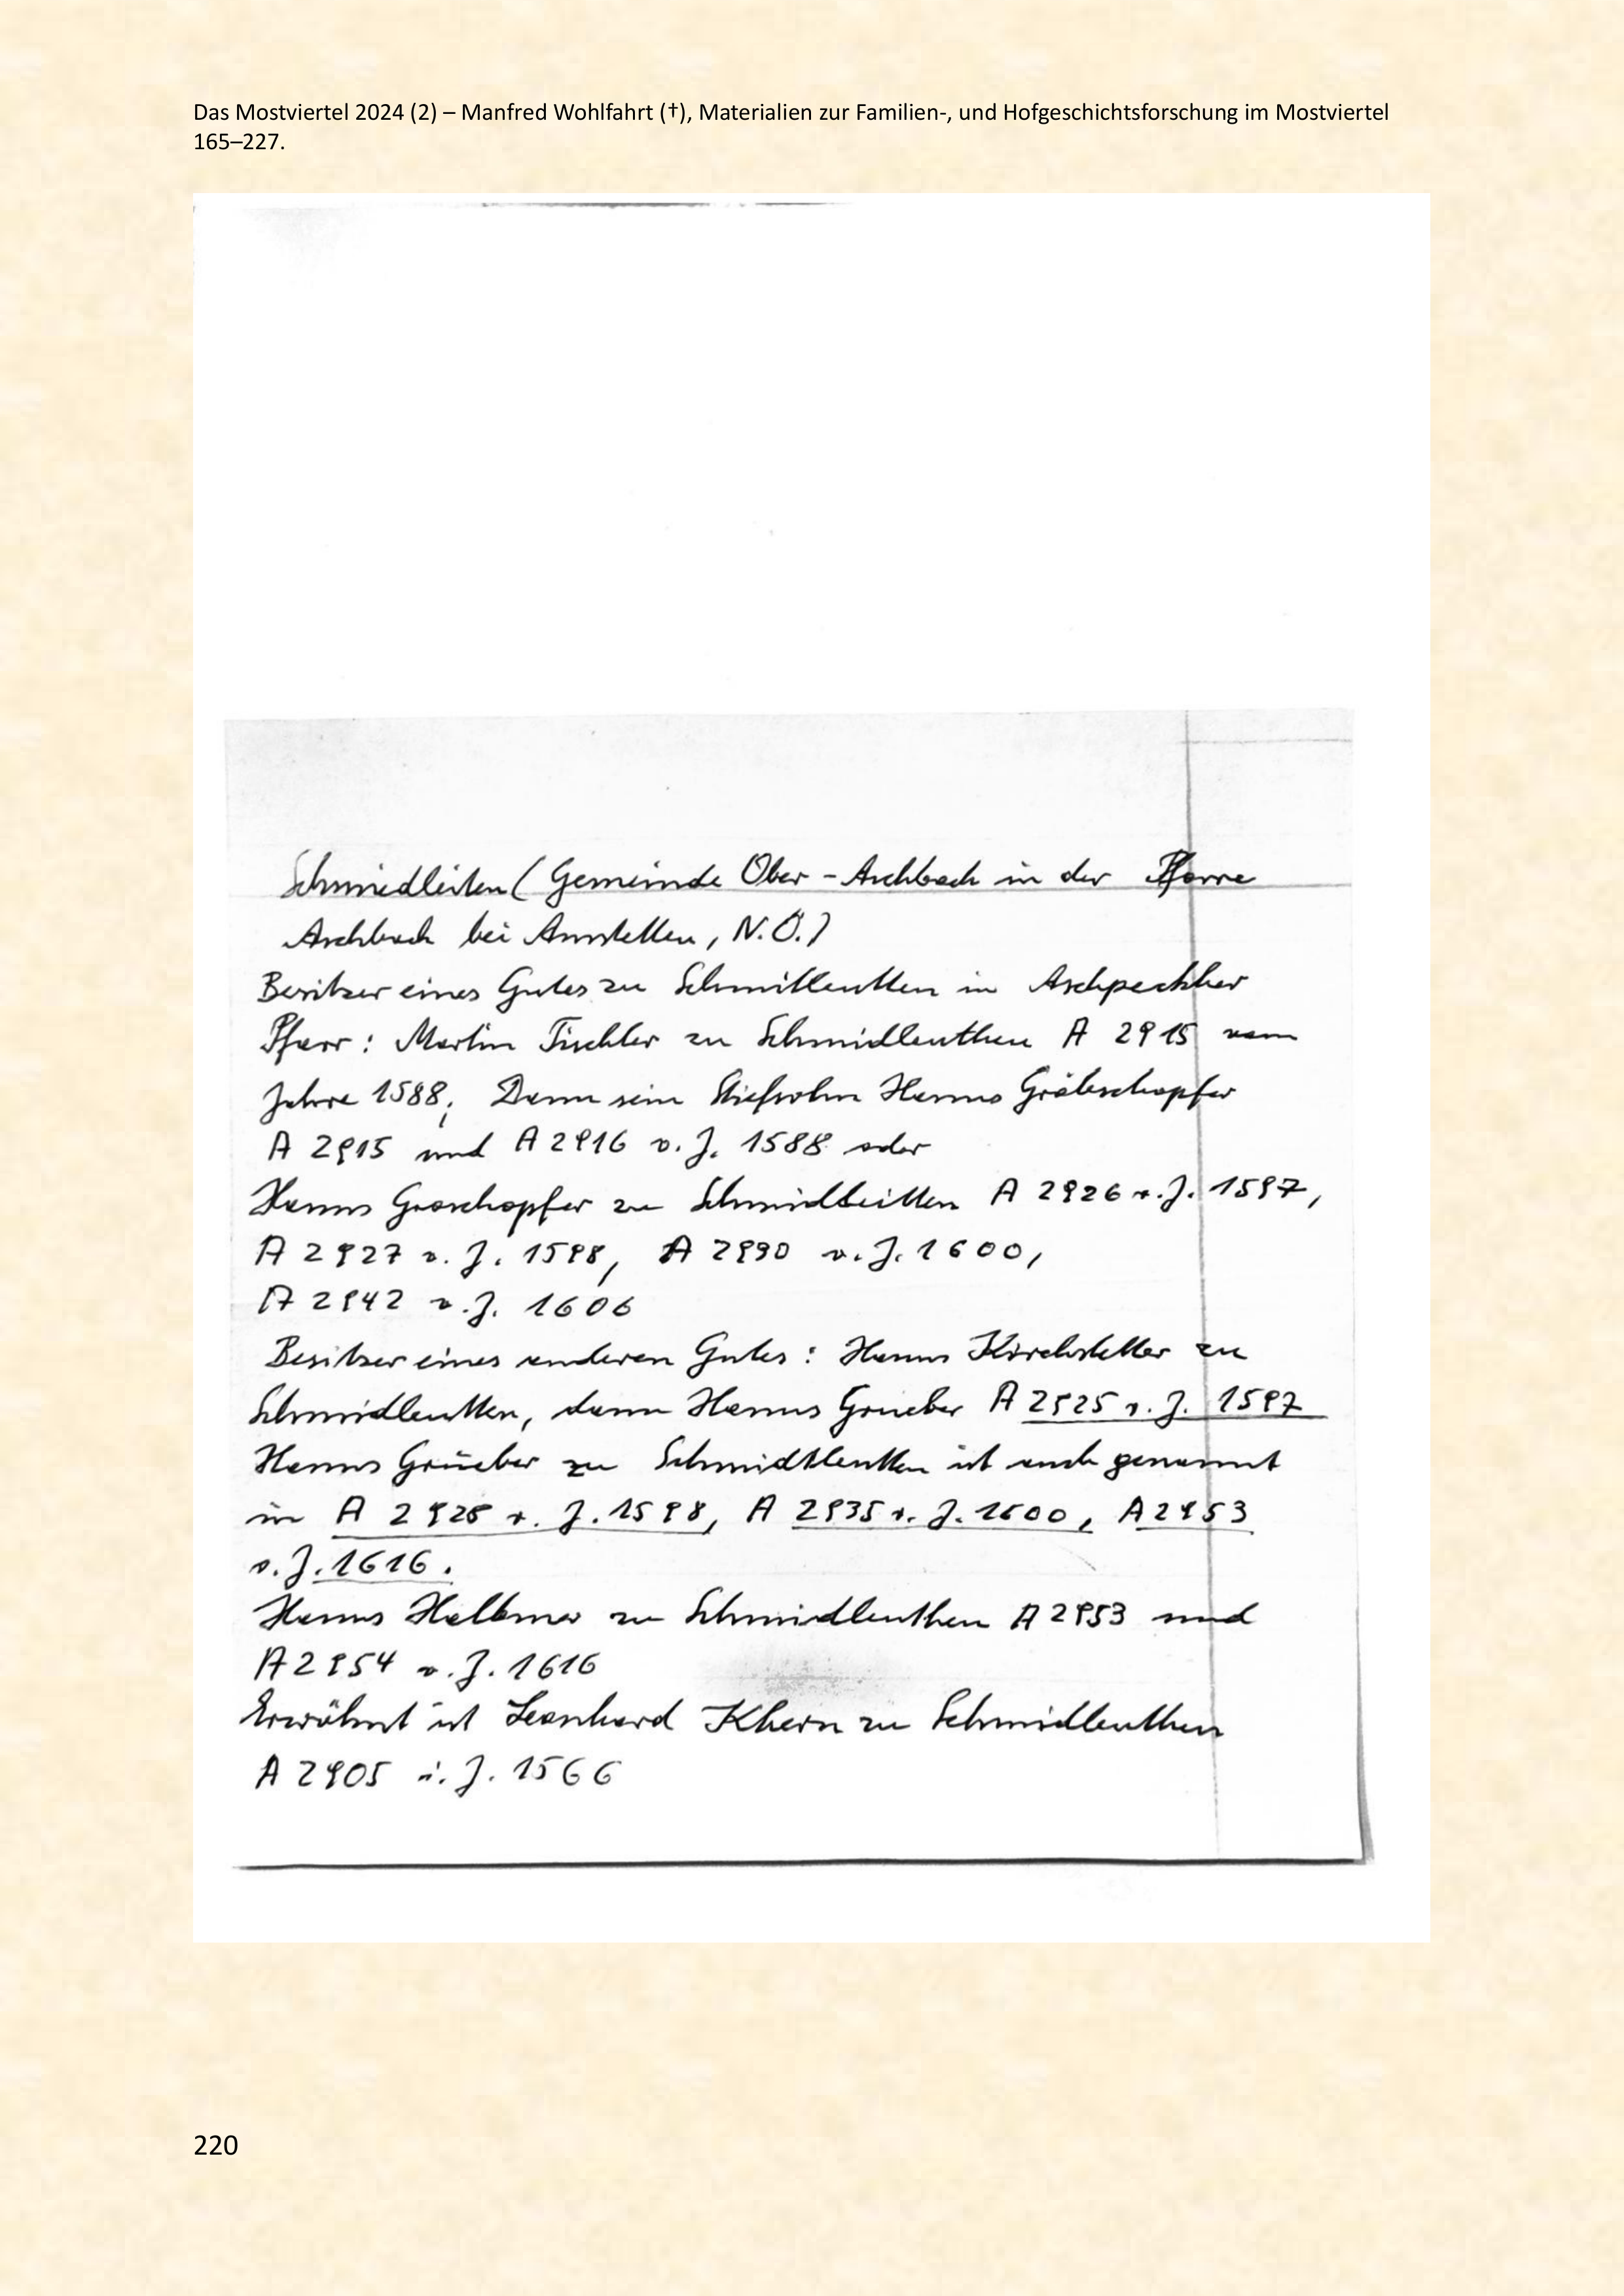 Das Mostviertel 2024 (2) – Manfred Wohlfahrt (†), Materialien zur Familien-, und Hofgeschichtsforschung im Mostviertel
165–227.
Schmiedleiten (Gemeinde Ober-Aschbach in der Pfarre
Aschbach bei Amstetten, N.Ö.)
Besitzer eines Gutes zu Schmitleutten in Aschpeckher
Pfarr: Martin Tischler zu Schmidleuthen A 2915 vom
Jahre 1588; Dann sein Stiefsohn Hanns Gräbschopfer
A 2915 und A 2916 v. J. 1588 oder
Hanns Graschopfer zu Schmidleitten A 2926 v. J. 1597,
A 2927 v. J. 1598, A 2930 v. J. 1600,
A 2942 v. J. 1606
Besitzer eines anderen Gutes: Hanns Kirchstetter zu
Schmidleutten, dann Hanns Grueber A 2925 v. J. 1597
Hanns Grüeber zu Schmidtleutten ist auch genannt
in A 2928 v. J. 1598, A 2935 v. J. 1600, A 2953
v. J. 1616.
Hanns zu Schmidleuthen A 2953 und
A 2954 v. J. 1616
Erwähnt ist Leonhard Khern zu Schmidleuthen
A 2905 i. J. 1566
220